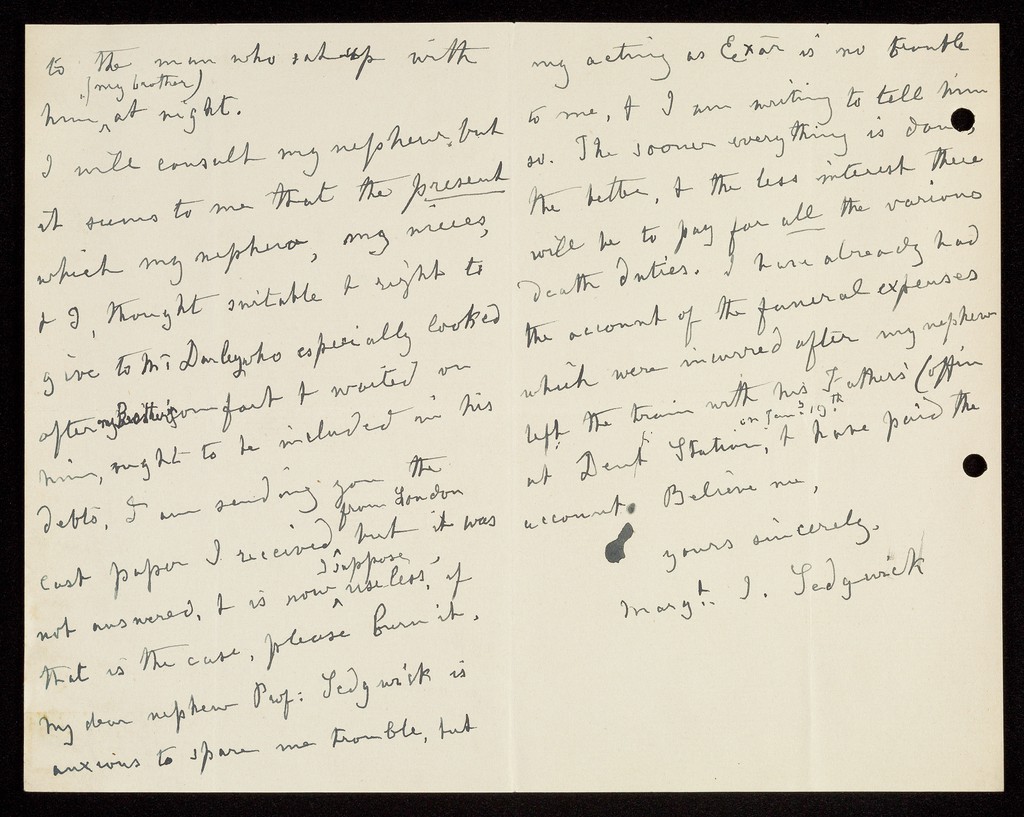 to the man who sat up with
(my brother)
him, at night.
I will consult my nephew, but
it seems to me that the present
which my nephew, my nieces,
& I, thought suitable & right to
give to Mr Darley who especially looked
after my Brother's comfort & waited on
him, ought to be included in his
debts. I am sending you the
from London
last paper I received, but it was
I suppose
not answered, & is now useless, if
that is the case, please burn it.
My dear nephew Prof: Sedgwick is
anxious to spare me trouble, but
my acting as Exār is no trouble
to me, & I am writing to tell him
so. The sooner everything is done,
the better, & the less interest there
will be to pay for all the various
death duties. I have already had
the account of the funeral expenses
which were incurred after my nephew
left the train with his Fathers' Coffin
on Jan: 19th
at Dent Station, & have paid the
account. Believe me,
yours sincerely,
Margt. I. Sedgwick